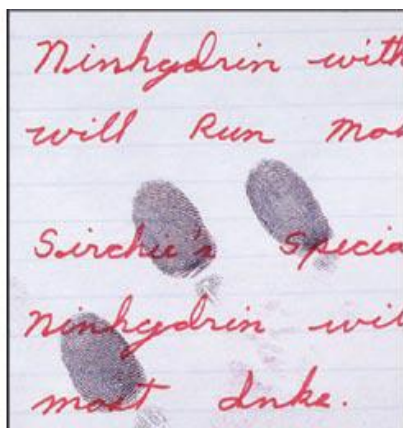 Ninhydrin with
will Run mo
Sirchie's specia
Ninhydrin wil
most Inks.